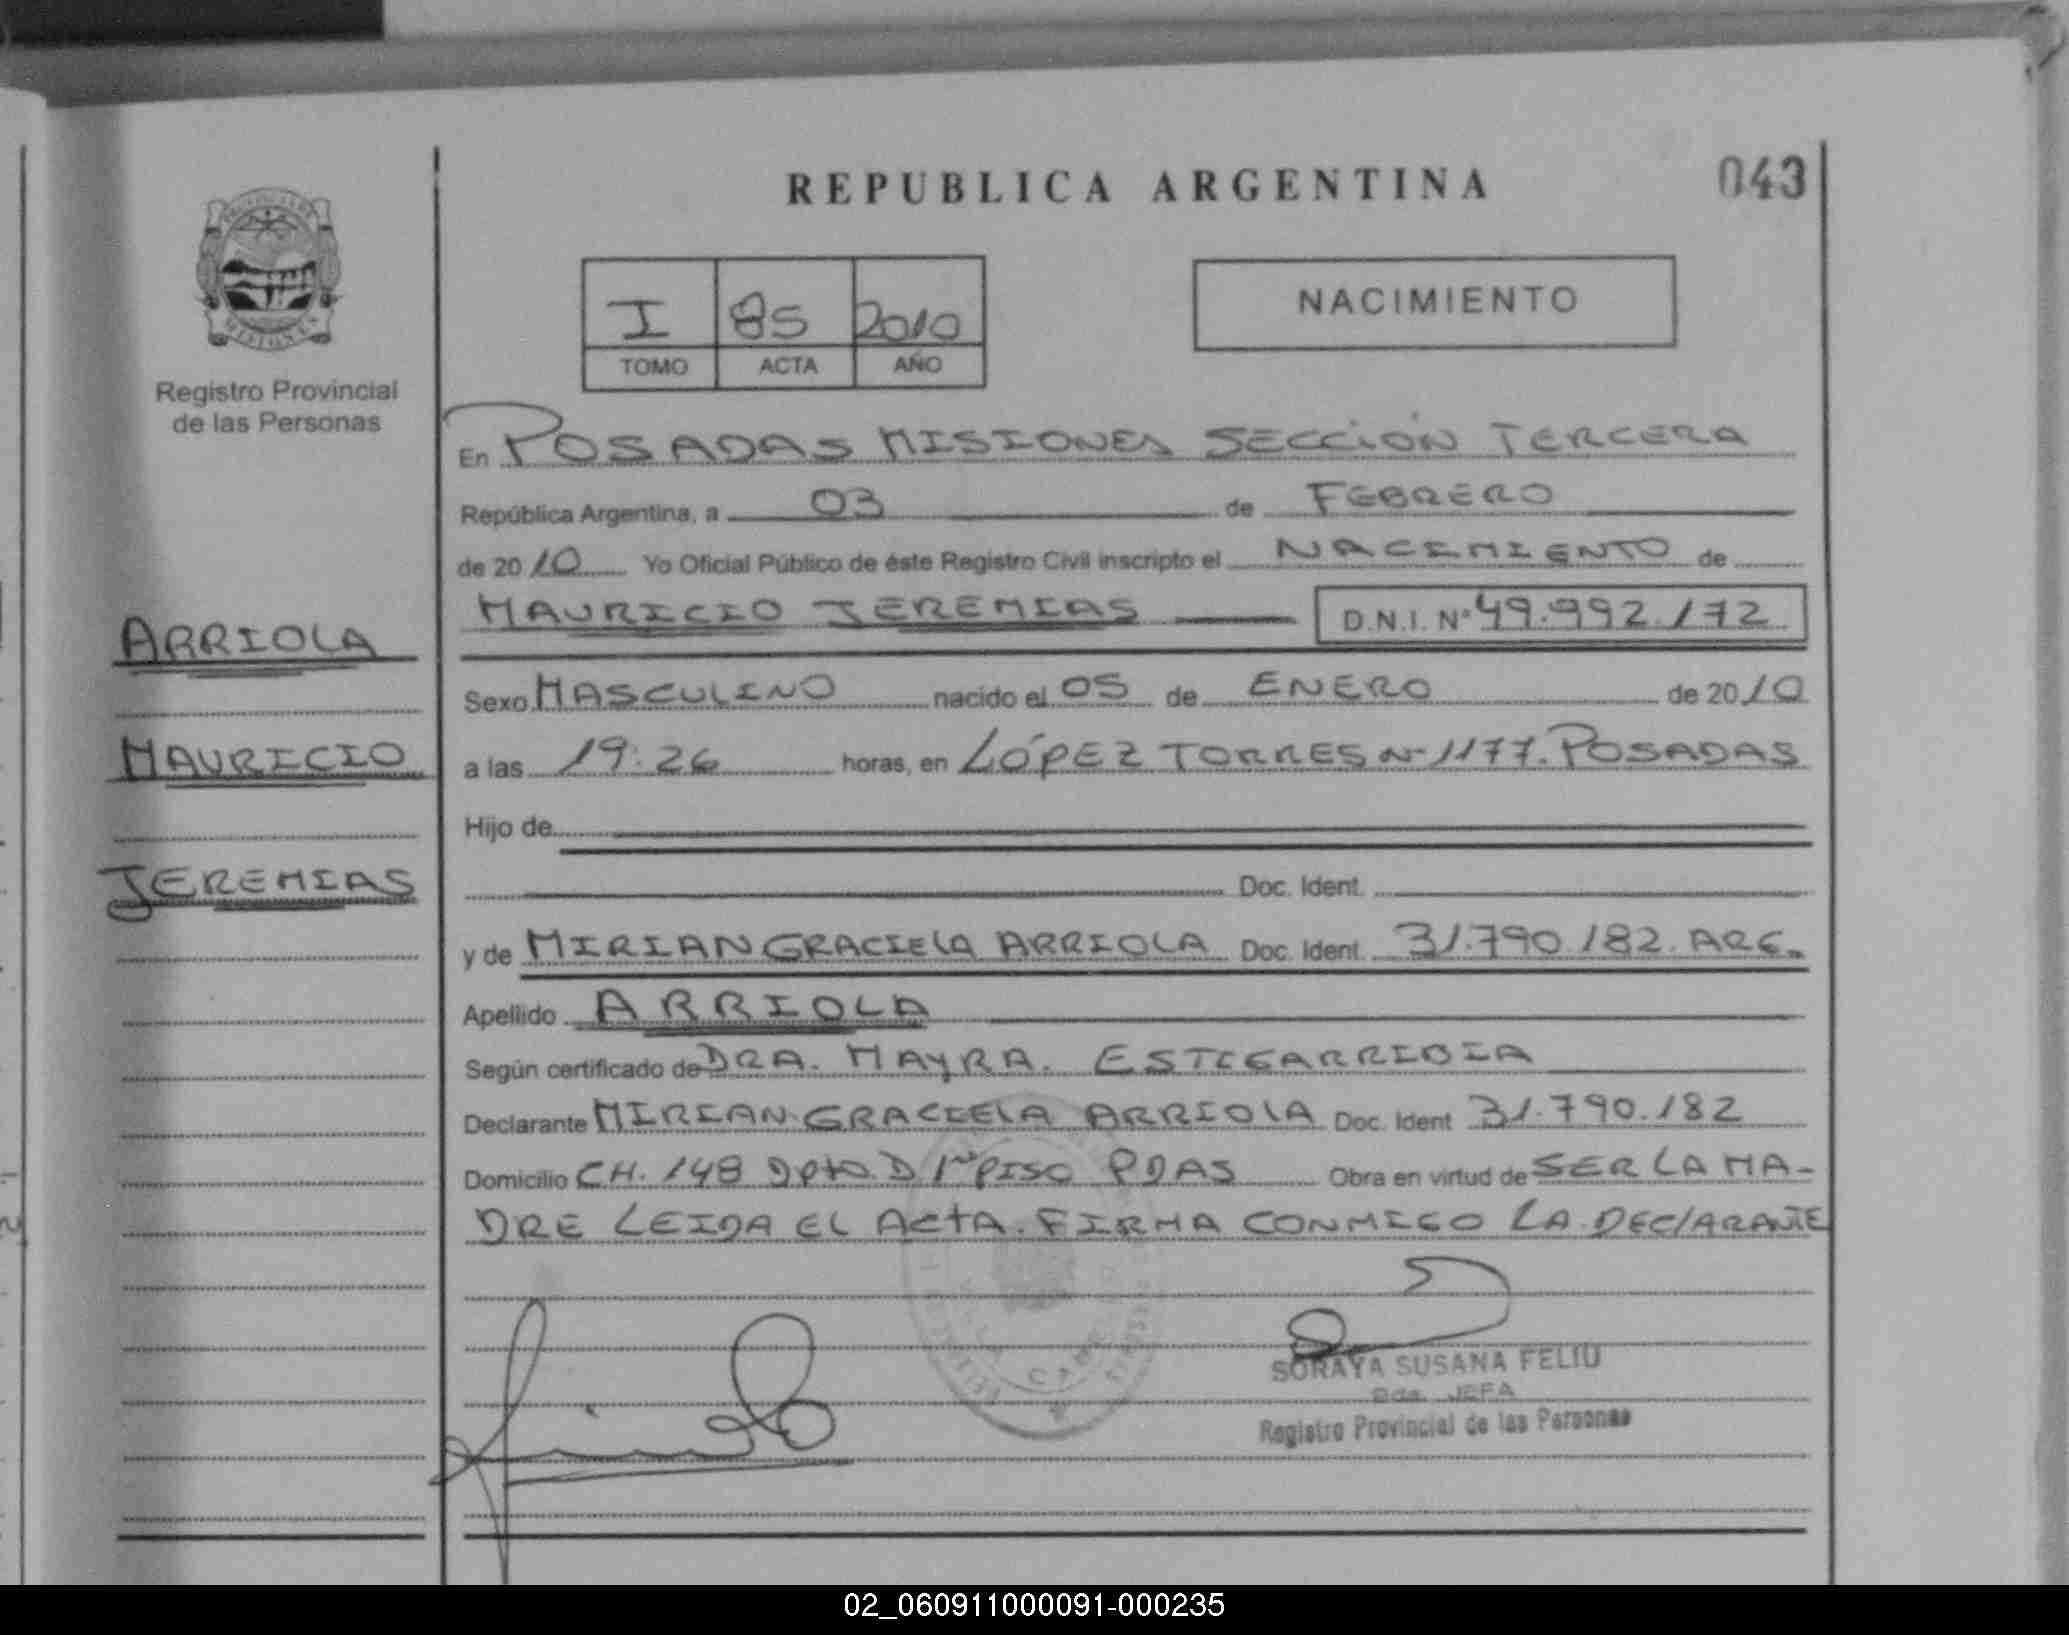 REPUBLICA ARGENTINA
043
MISIONES
Registro Provincial
de las Personas
I 85 2010
TOMO ACTA AÑO
NACIMIENTO
En POSADAS MISIONES SECCIÓN TERCERA
República Argentina, a 03 de FEBRERO
de 2010 Yo Oficial Público de éste Registro Civil inscripto el NACIMIENTO de
MAURICIO JEREMIAS D.N.I. Nº 49.992.172
ARRIOLA
MAURICIO
JEREMIAS
Sexo MASCULINO nacido el 05 de ENERO de 2010
a las 19:26 horas, en LÓPEZ TORRES Nº 1177. POSADAS
Hijo de
Doc. Ident.
y de MIRIAN GRACIELA ARRIOLA Doc. Ident. 31.790.182. ARG.
Apellido ARRIOLA
Según certificado de DRA. MAYRA. ESTIGARRIBIA
Declarante MIRIAN GRACIELA ARRIOLA Doc. Ident 31.790.182
Domicilio CH. 148 Dpto. D 1er PISO PDAS Obra en virtud de SER LA MA-
DRE LEIDA EL ACTA. FIRMA CONMIGO LA DECLARANTE
SORAYA SUSANA FELIU
JEFA
Registro Provincial de las Personas
02_060911000091-000235